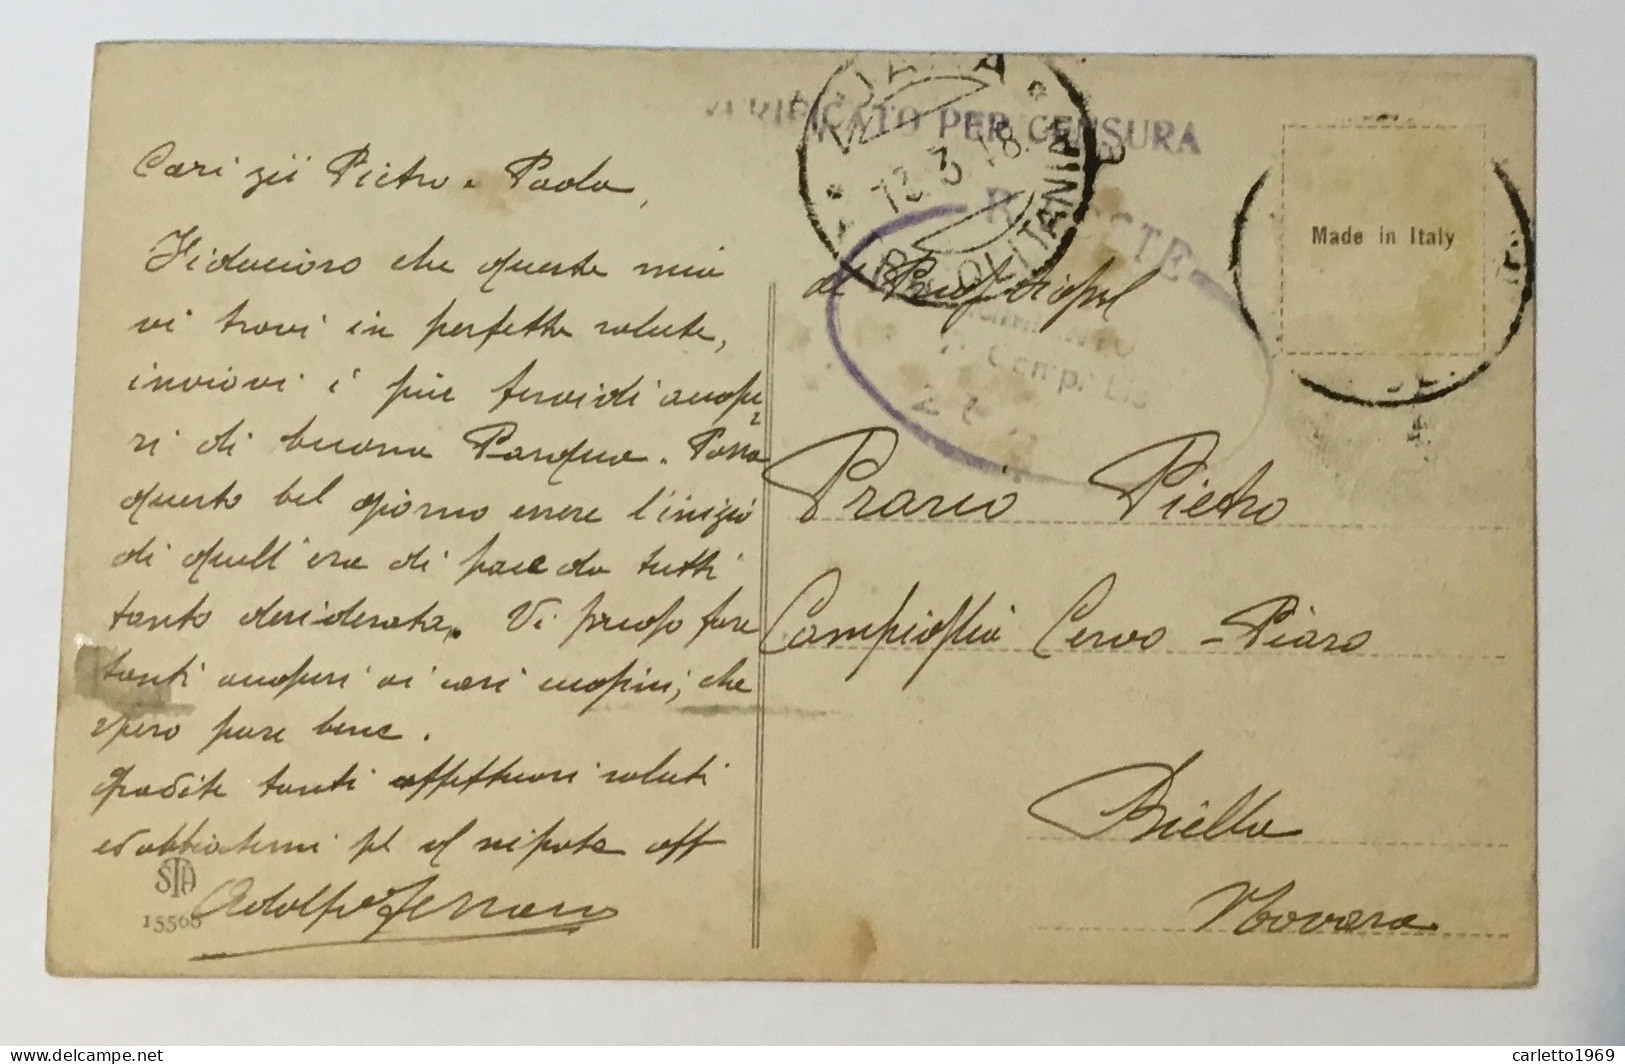 Cari zii Pietro e Paola,
Fiducioso che questa mia
vi trovi in perfetta salute,
inviovi i più fervidi augu-
ri di buona Pasqua. Possa
questo bel giorno essere l'inizio
di quell'era di pace da tutti
tanto desiderata. Vi prego fare
tanti auguri ai cari cugini, che
spero pure bene.
Gradite tanti affettuosi saluti
ed abbiatemi pel nipote aff
Adolfo
STA
15568
VERIFICATO PER CENSURA
13.3.18
TRIPOLITANIA
Made in Italy
Camp.
Prario Pietro
Campiglia Cervo - Piaro
Biella
Novara
delcampe.net
carletto1969